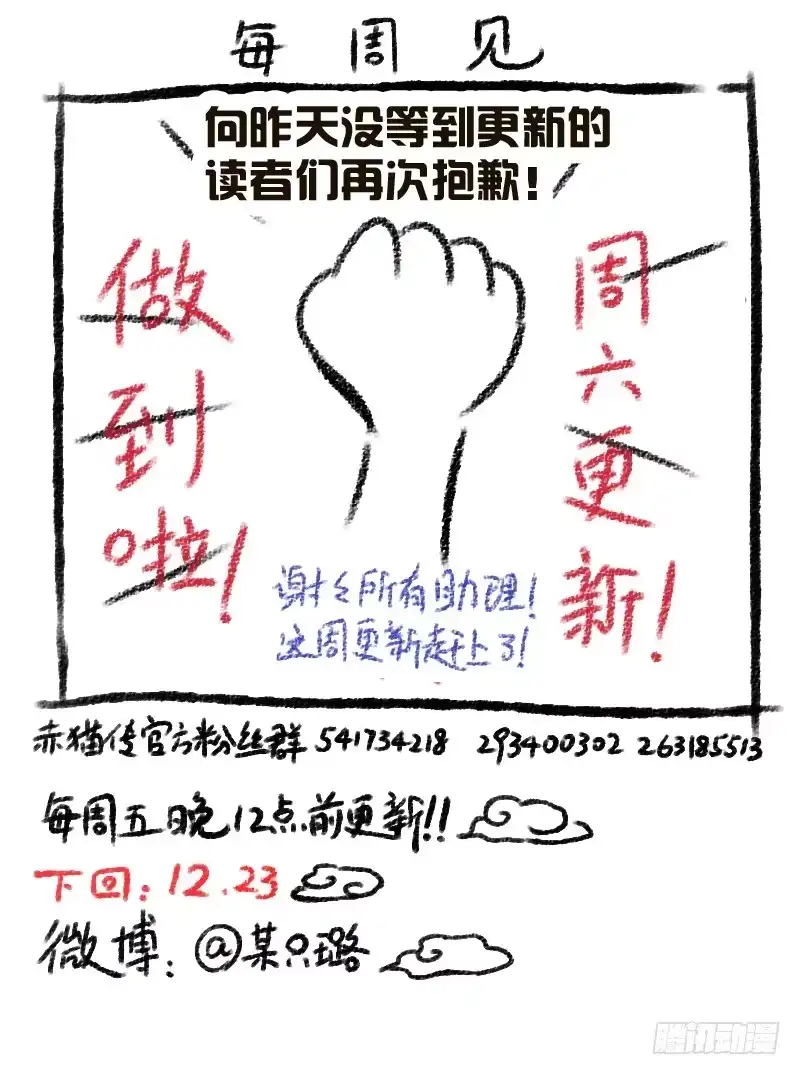 每周见
向昨天没等到更新的
读者们再次抱歉！
做到啦！
周六更新！
谢谢所有助理！
这周更新赶上了！
赤猫传官方粉丝群 541734218 293400302 263185513
每周五晚12点前更新!!
下回：12.23
微博：@某只璐
腾讯动漫